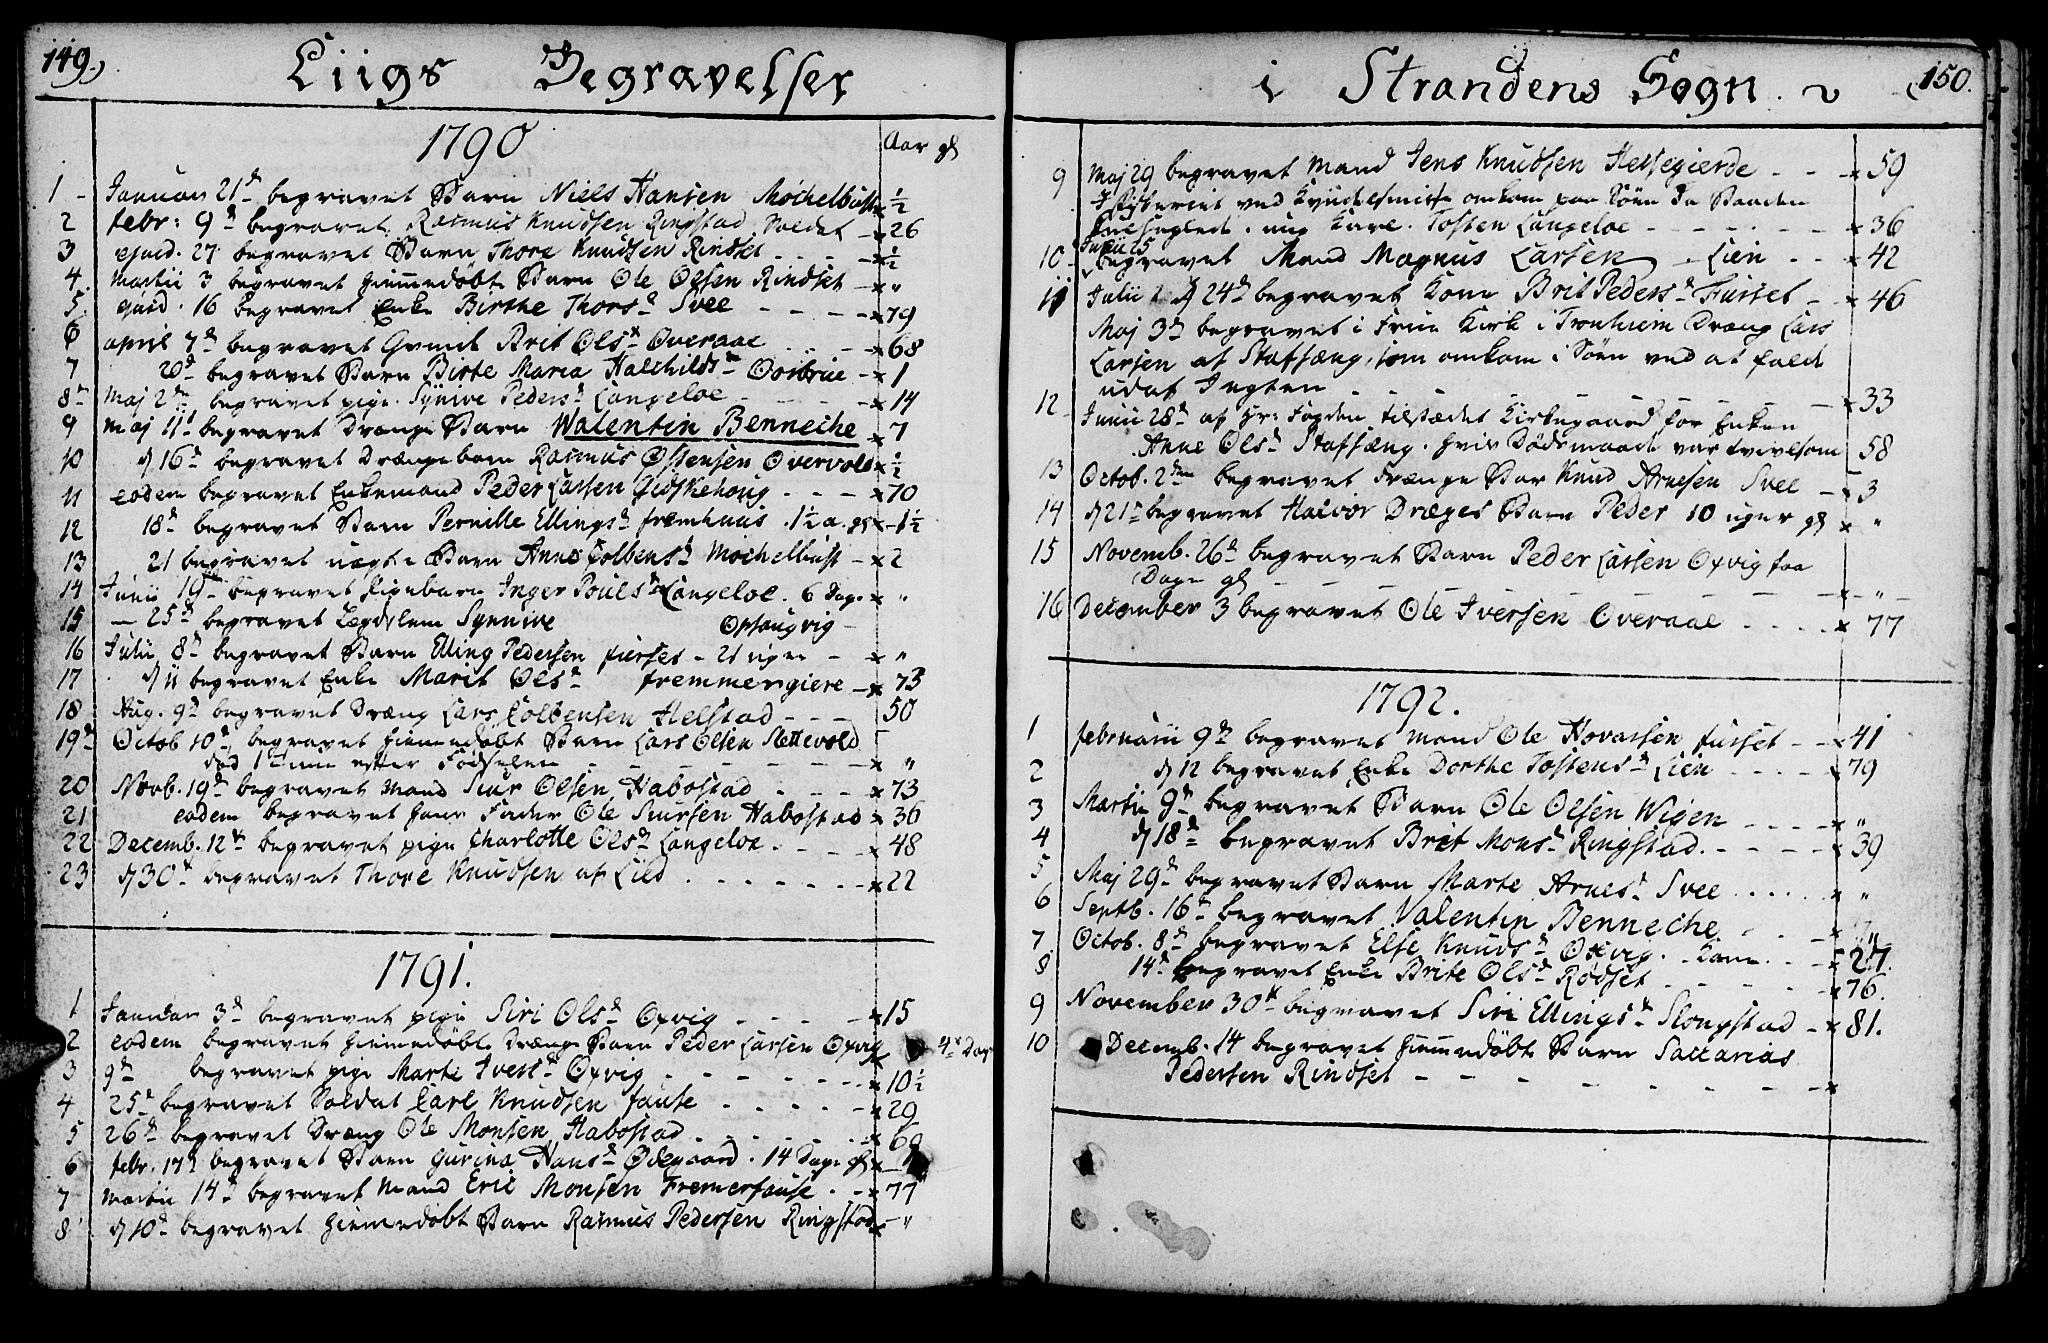 149.)
Liigs Begravelser
1790
Aar gl
1 Januar 21de begravet Barn Niels Hansen Møchelbust x ½
2 febr: 9de begravet Rasmus Knudsen Ringstad Soldat x 26
3 ejusd. 27 begravet Barn Thore Knudsen Rindset x ½
4. Martii 3 begravet hiemmedøbt Barn Ole Olsen Rindset x "
5. ejusd. 16 begravet Enke Birthe Thorsd Svee x 79
6 april 7de begravet Brit Olsd Overaae x 68
7 20de begravet Barn Birte Maria Oostrue x 1
8de Maj 2de begravet pige Synive Pedersd Langeloe x 14
9 Maj 11t begravet Drænge Barn Walentin Benneche x 7
10 d 16de begravet Drængebarn Rasmus Ostensen Overvold x ½
11 eodem begravet Enkemand Peder Larsen Giskehoug x 70
12 18de begravet Barn Pernille Ellingsd fremhuus . 1½ a. gl x 1½
13 21 begravet uægte Barn Anne Colbensd Møchelbust x 2
14 Junii 19de begravet Pigebarn Inger Poulsd Langeloe. 6 Dage x "
15 — 25de begravet Legdslem Synnive Opsaugvig
16 Julii 8de begravet Barn Elling Pedersen furset 21 uger x "
17 d 11 begravet Enke Marit Olsd fremmergiere x 73
18 Aug. 9de begravet Dræng Lars Colbensen Helstad 50
19de Octob 10de begravet hiemmedøbt Barn Lars Olsen Slettevold
død 1 Time efter Fødselen x "
20 Novb. 19de begravet Mand Siur Olsen Habostad x 73
21 eodem begravet hans Ole Siursen Habostad x 36
22 Decemb. 12te begravet pige Charlotte Olsd Langeloe x 48
23 d 30te begravet Thore Knudsen af Lied x 22
1791.
1 Januar 3de begravet pige Siri Olsd Oxvig x 15
2 eodem begravet hiemmedøbt Drænge Barn Peder Larsen Oxvig 4 Dage
3 9de begravet pige Marte Iversd Oxvig x 10½
4 25de begravet Soldat Carl Knudsen fause x 29
5 26de begravet Dræng Ole Monsen Habostad x 69
6 febr. 17de begravet Barn Gurina Hansd Ødegaard . 14 Dage gl x
7 Martii 14de begravet Mand Eric Monsen Fremerfause x 77
8 d 10de begravet hiemmedøbt Barn Rasmus Pedersen Ringstad x "
i Strandens Sogn.
(150.
9 Maj 29 begravet Mand Jens Knudsen Helsegierde x 59
ved Kyndelsmisse omkom paa Søen da Baaden
. ung Karl. Tosten Langeloe x 36
10 Junii 25 begravet Mand Magnus Larsen Lien x 42
11 Julii d 24de begravet Kone Brit Pedersd Furset x 46
Maj 3de begravet i Frue Kirk i Tronhiem Dræng Lars
Larsen af Stafsæng, som omkom i Søen ved at falde
udaf Jegten x 33
12 Junii 28de af Hr: Fogden tilstædet Kirkegaard for Enken
Anne Olsd Stafsæng. hvis Dødsmaade var tvivlsom 58
13 Octob. 2den begravet Drænge Bar Knud Arnesen Svee x 3
14 d 21de begravet Halvor Dræges Barn Peder 10 uger gl x "
15 Novemb. 26de begravet Barn Peder Larsen Oxvig faa
Dage gl x "
16 December 3 begravet Ole Iversen Overaae x 77
1792.
1 februarii 9de begravet Mand Ole Hovarsen furset x 41
2 d 12 begravet Enke Dorthe Tostensd Lien x 79
3 Martii 9de begravet Barn Ole Olsen Wigen x "
4 d 18de begravet Brit Monsd Ringstad. x 39
5 Maj 29de begravet Barn Marte Arnesd Svee x "
6 Septb. 16de begravet Valentin Benneche x "
7 Octob. 8de begravet Else Knudsd Oxvig. Kone x 27.
8 14de begravet Enke Brite Olsd Rødset x 76.
9 November 30te begravet Siri Ellingsd Slongstad x 81.
10 Decemb. 14 begravet hiemmedøbt Barn Saccarias
Pedersen Rindset x